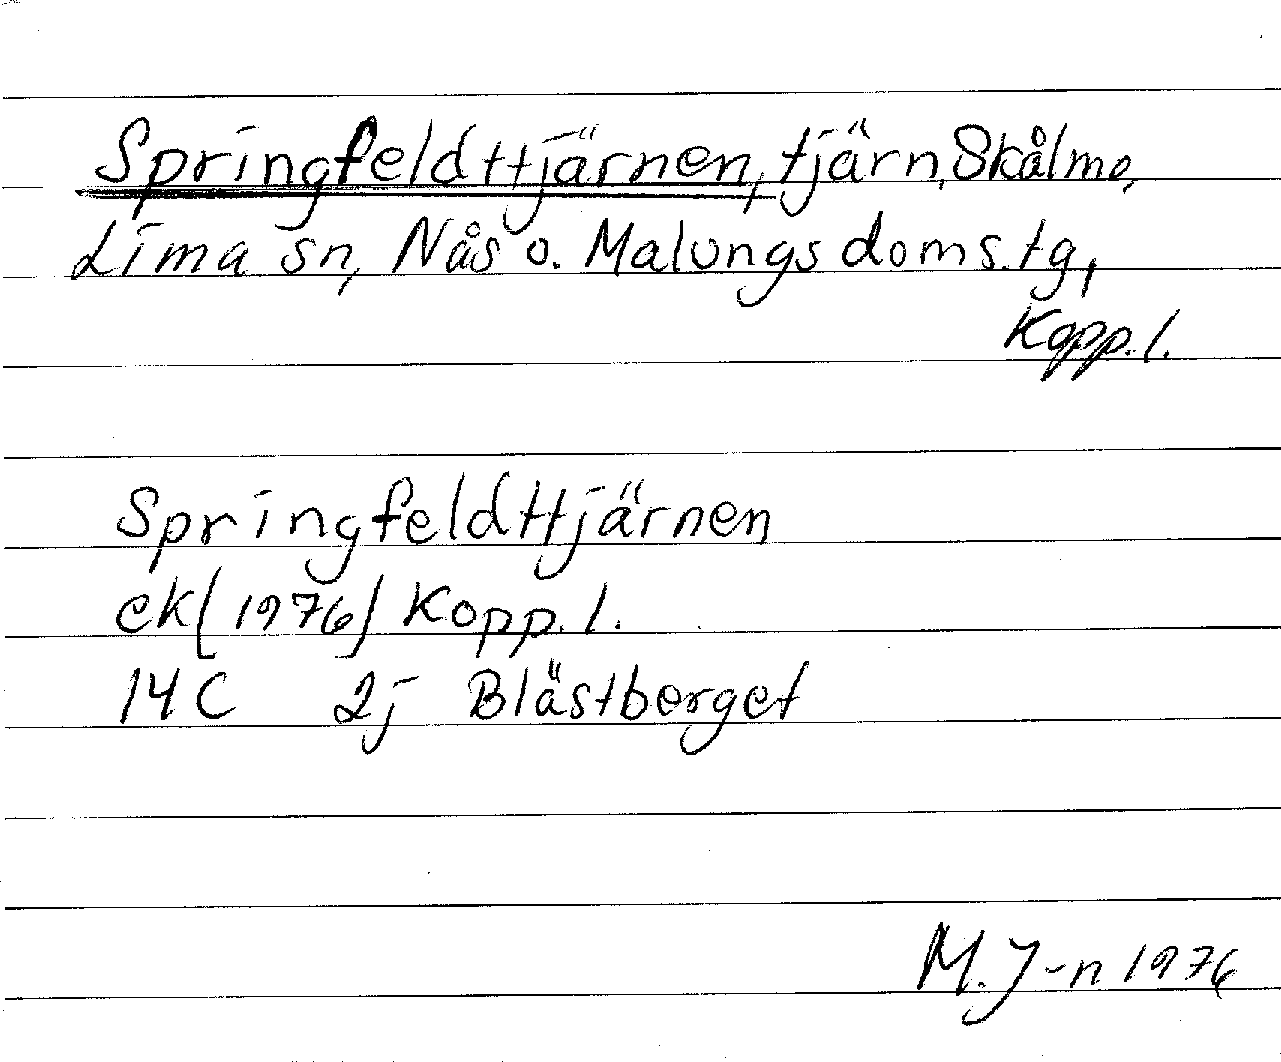 Springfeldttjärnen, tjärn, Skålmo,
Lima sn, Nås o. Malungs doms.tg,
Kopp.l.
Springfeldttjärnen
ek [1976] Kopp. l.
14C 2j Blästberget
M. J-n 1976